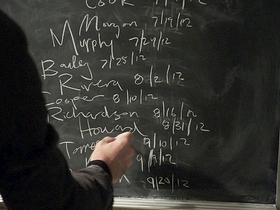 Cook 7/12/12
Morgan 7/19/12
Murphy 7/24/12
Bailey 7/25/12
Rivera 8/2/12
Cooper 8/10/12
Richardson 8/16/12
Howard 8/31/12
9/10/12
/12
9/20/12